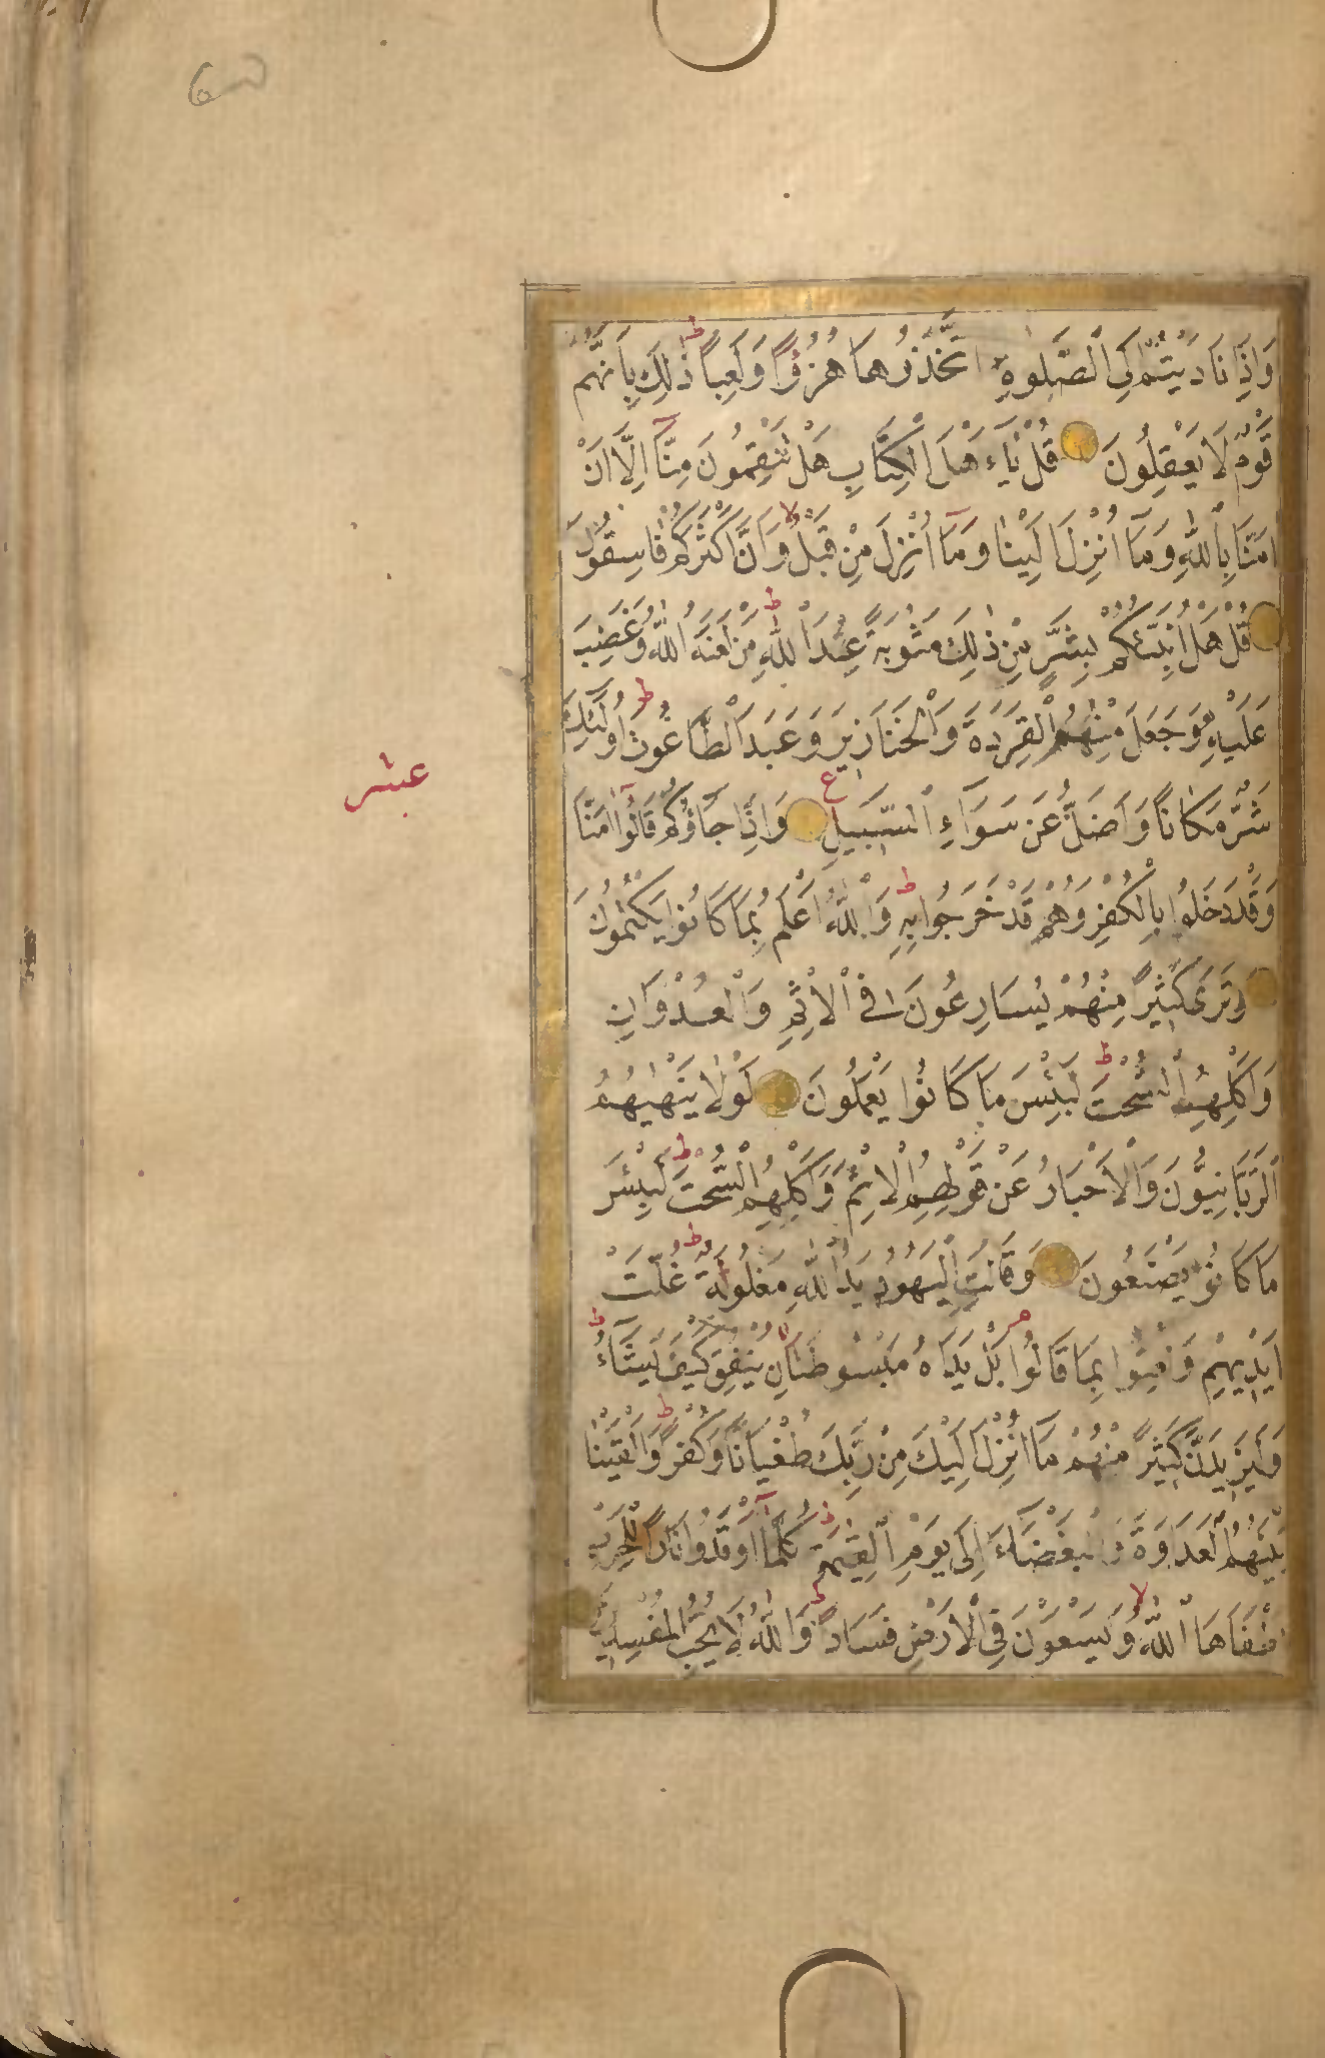 وَاِذَا نَادَيْتُمْ اِلَى الصَّلٰوةِ اتَّخَذُوهَا هُزُوًا وَلَعِبًا ط ذٰلِكَ بِاَنَّهُمْ
قَوْمٌ لَا يَعْقِلُونَ قُلْ يَآءَهْلَ الْكِتَابِ هَلْ تَنْقِمُونَ مِنَّآ اِلَّا اَنْ
اٰمَنَّا بِاللّٰهِ وَمَآ اُنْزِلَ اِلَيْنَا وَمَآ اُنْزِلَ مِنْ قَبْلُ لا وَاَنَّ اَكْثَرَكُمْ فَاسِقُونَ
قُلْ هَلْ اُنَبِّئُكُمْ بِشَرٍّ مِنْ ذٰلِكَ مَثُوبَةً عِنْدَ اللّٰهِ ط مَنْ لَعَنَهُ اللّٰهُ وَغَضِبَ
عَلَيْهِ وَجَعَلَ مِنْهُمُ الْقِرَدَةَ وَالْخَنَازِيرَ وَعَبَدَ الطَّاغُوتَ ط اُولٰٓئِكَ
شَرٌّ مَكَانًا وَاَضَلُّ عَنْ سَوَآءِ السَّبِيلِ ع وَاِذَا جَاؤُكُمْ قَالُوٓا اٰمَنَّا
عشر
وَقَدْ دَخَلُوا بِالْكُفْرِ وَهُمْ قَدْ خَرَجُوا بِهِ ط وَاللّٰهُ اَعْلَمُ بِمَا كَانُوا يَكْتُمُونَ
وَتَرٰى كَثِيرًا مِنْهُمْ يُسَارِعُونَ فِي الْاِثْمِ وَالْعُدْوَانِ
وَاَكْلِهِمُ السُّحْتَ ط لَبِئْسَ مَا كَانُوا يَعْمَلُونَ لَوْلَا يَنْهٰيهُمُ
الرَّبَّانِيُّونَ وَالْاَحْبَارُ عَنْ قَوْلِهِمُ الْاِثْمَ وَاَكْلِهِمُ السُّحْتَ ط لَبِئْسَ
مَا كَانُوا يَصْنَعُونَ وَقَالَتِ الْيَهُودُ يَدُ اللّٰهِ مَغْلُولَةٌ ط غُلَّتْ
اَيْدِيهِمْ وَلُعِنُوا بِمَا قَالُوا م بَلْ يَدَاهُ مَبْسُوطَتَانِ لا يُنْفِقُ كَيْفَ يَشَآءُ ط
وَلَيَزِيدَنَّ كَثِيرًا مِنْهُمْ مَآ اُنْزِلَ اِلَيْكَ مِنْ رَبِّكَ طُغْيَانًا وَكُفْرًا ط وَاَلْقَيْنَا
بَيْنَهُمُ الْعَدَاوَةَ وَالْبَغْضَآءَ اِلٰى يَوْمِ الْقِيٰمَةِ ط كُلَّمَآ اَوْقَدُوا نَارًا لِلْحَرْبِ
اَطْفَاَهَا اللّٰهُ لا وَيَسْعَوْنَ فِي الْاَرْضِ فَسَادًا ط وَاللّٰهُ لَا يُحِبُّ الْمُفْسِدِينَ